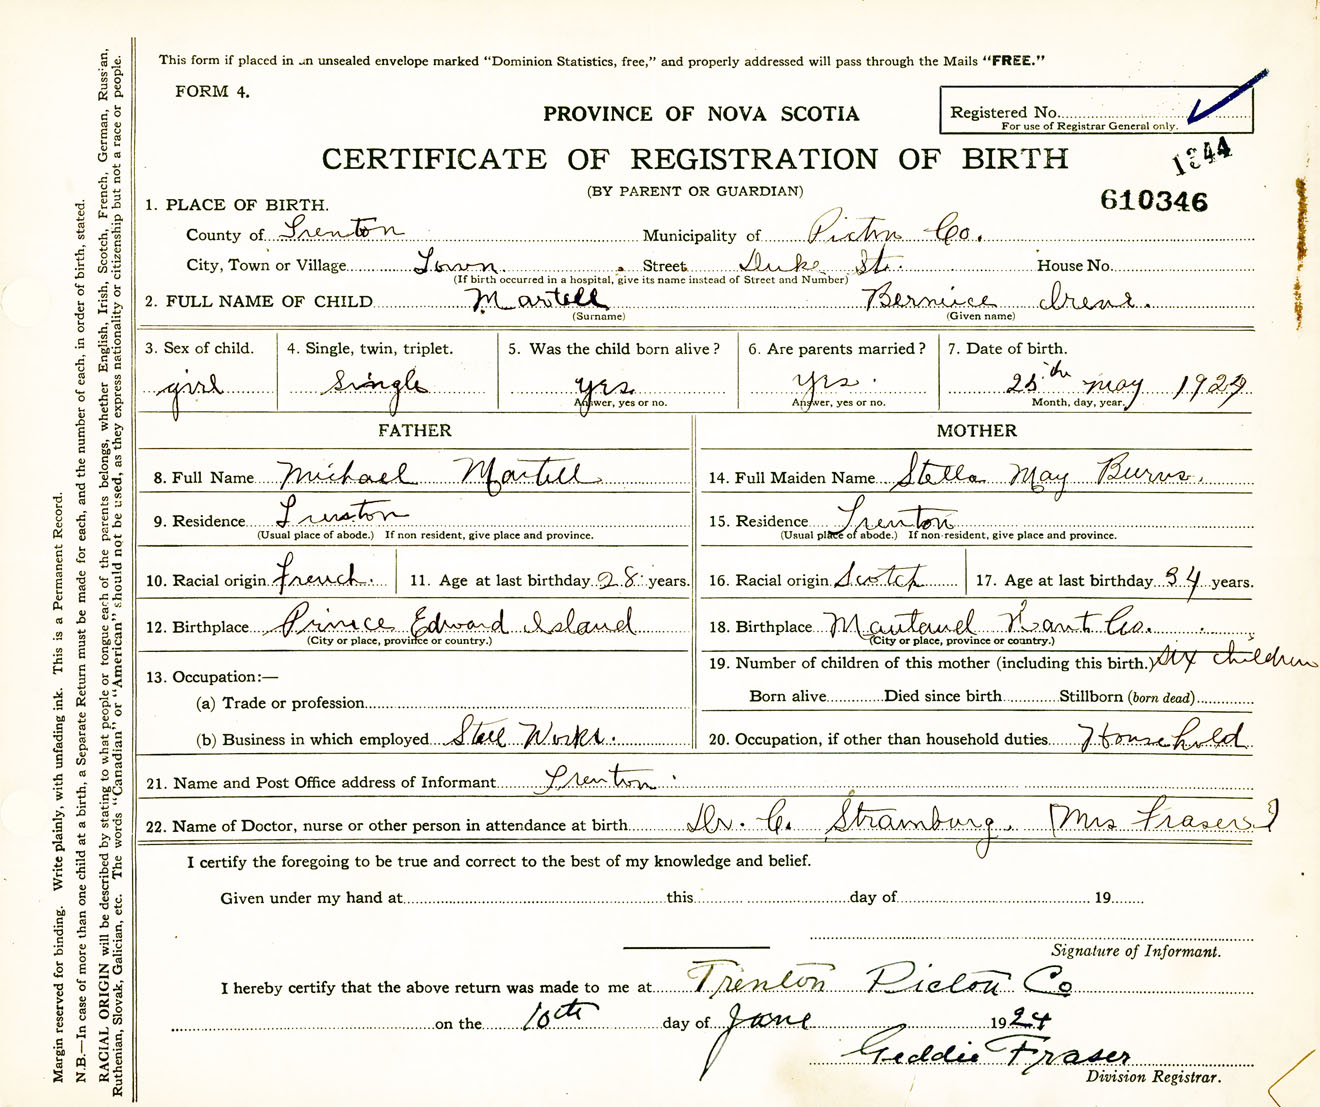 This form if placed in an unsealed envelope marked "Dominion Statistics, free," and properly addressed will pass through the Mails "FREE."
FORM 4.
PROVINCE OF NOVA SCOTIA
Registered No.
For use of Registrar General only.
CERTIFICATE OF REGISTRATION OF BIRTH
1344
(BY PARENT OR GUARDIAN)
610346
1. PLACE OF BIRTH.
County of Trenton Municipality of Pictou Co.
City, Town or Village Town. Street Duke St. House No.
(If birth occurred in a hospital, give its name instead of Street and Number)
2. FULL NAME OF CHILD Martell Bernice Irene.
(Surname) (Given name)
3. Sex of child. 4. Single, twin, triplet. 5. Was the child born alive? 6. Are parents married? 7. Date of birth.
girl Single yes yes. 25th May 1924
Answer, yes or no. Answer, yes or no. Month, day, year.
FATHER MOTHER
8. Full Name Michael Martell 14. Full Maiden Name Stella May Burns.
9. Residence Trenton 15. Residence Trenton
(Usual place of abode.) If non resident, give place and province. (Usual place of abode.) If non-resident, give place and province.
10. Racial origin French. 11. Age at last birthday 28 years. 16. Racial origin Scotch 17. Age at last birthday 34 years.
12. Birthplace Prince Edward Island 18. Birthplace Co.
(City or place, province or country.) (City or place, province or country.)
19. Number of children of this mother (including this birth.) six children
13. Occupation:—
(a) Trade or profession Born alive Died since birth Stillborn (born dead)
(b) Business in which employed Steel Works. 20. Occupation, if other than household duties Household
21. Name and Post Office address of Informant Trenton
22. Name of Doctor, nurse or other person in attendance at birth Dr. C. Stramburg. (Mrs Fraser)
I certify the foregoing to be true and correct to the best of my knowledge and belief.
Given under my hand at this day of 19
Signature of Informant.
I hereby certify that the above return was made to me at Trenton Pictou Co
on the 10th day of June 1924
Geddie Fraser
Division Registrar.
Margin reserved for binding. Write plainly, with unfading ink. This is a Permanent Record.
N.B.—In case of more than one child at a birth, a Separate Return must be made for each, and the number of each, in order of birth, stated.
RACIAL ORIGIN will be described by stating to what people or tongue each of the parents belongs, whether English, Irish, Scotch, French, German, Russian,
Ruthenian, Slovak, Galician, etc. The words "Canadian" or "American" should not be used, as they express nationality or citizenship but not a race or people.